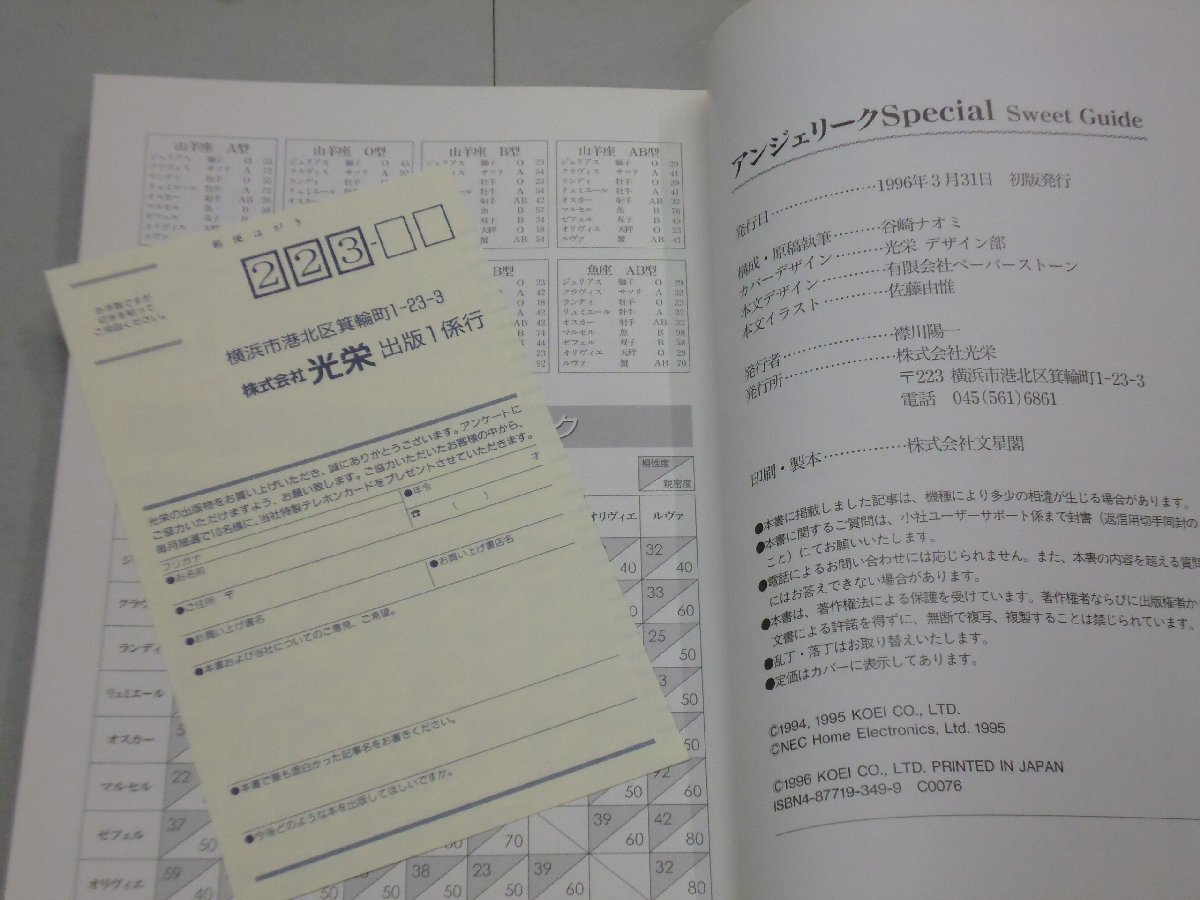 山羊座 A型
ジュリアス 獅子 O 55
山羊座 O型
ジュリアス 獅子 O 45
クラヴィス サソリ A
山羊座 B型
獅子 O 23
サソリ A
牡羊 O 23
牡牛 A 54
射手 AB 42
魚 B 57
双子 B 34
天秤 O 18
蟹 AB 54
山羊座 AB型
ジュリアス 獅子 O 29
クラヴィス サソリ A 41
ランディ 牡羊 O 29
リュミエール 牡牛 A 54
オスカー 射手 AB 32
マルセル 魚 B 76
ゼフェル 双子 B 45
オリヴィエ 天秤 O 29
ルヴァ 蟹 AB 47
B型
魚座 AB型
ジュリアス 獅子 O 29
クラヴィス サソリ A 32
ランディ 牡羊 O 23
リュミエール 牡牛 A 32
オスカー 射手 AB 32
マルセル 魚 B 98
ゼフェル 双子 B 58
オリヴィエ 天秤 O 29
ルヴァ 蟹 AB 70
ク
相性度
親密度
オリヴィエ ルヴァ
40 32 40
クラヴ 60 33 60
ランディ 50 25 50
リュミエール 50 3 50
オスカー 5 50
マルセル 22 50 60 92 60
ゼフェル 37 50 70 39 60 42 80
オリヴィエ 59 40 50 38 50 23 50 39 60 32 80
郵便はがき
お手数ですが
切手を貼って
ご投函ください。
223-
横浜市港北区箕輪町1-23-3
株式会社 光栄 出版1係行
光栄の出版物をお買い上げいただき、誠にありがとうございます。アンケートに
ご協力いただけますよう、お願い致します。ご協力いただいたお客様の中から、
毎月抽選で10名様に、当社特製テレホンカードをプレゼントさせていただきます。
フリガナ
●お名前
●年令 才
☎ ( )
●ご住所 〒
●お買い上げ書名
●お買い上げ書店名
●本書および当社についてのご意見、ご希望。
●本書で最も面白かった記事名をお書きください。
●今後どのような本を出版してほしいですか。
アンジェリークSpecial Sweet Guide
発行日……………………1996年3月31日 初版発行
構成・原稿執筆………谷崎ナオミ
カバーデザイン………光栄 デザイン部
本文デザイン…………有限会社ペーパーストーン
本文イラスト…………佐藤由惟
発行者…………………襟川陽一
発行所…………………株式会社光栄
〒223 横浜市港北区箕輪町1-23-3
電話 045(561)6861
印刷・製本……………株式会社文星閣
●本書に掲載しました記事は、機種により多少の相違が生じる場合があります。
●本書に関するご質問は、小社ユーザーサポート係まで封書（返信用切手同封の
こと）にてお願いいたします。
●電話によるお問い合わせには応じられません。また、本書の内容を超える質問
にはお答えできない場合があります。
●本書は、著作権法による保護を受けています。著作権者ならびに出版権者か
文書による許諾を得ずに、無断で複写、複製することは禁じられています。
●乱丁・落丁はお取り替えいたします。
●定価はカバーに表示してあります。
©1994, 1995 KOEI CO., LTD.
©NEC Home Electronics, Ltd. 1995
©1996 KOEI CO., LTD. PRINTED IN JAPAN
ISBN4-87719-349-9 C0076